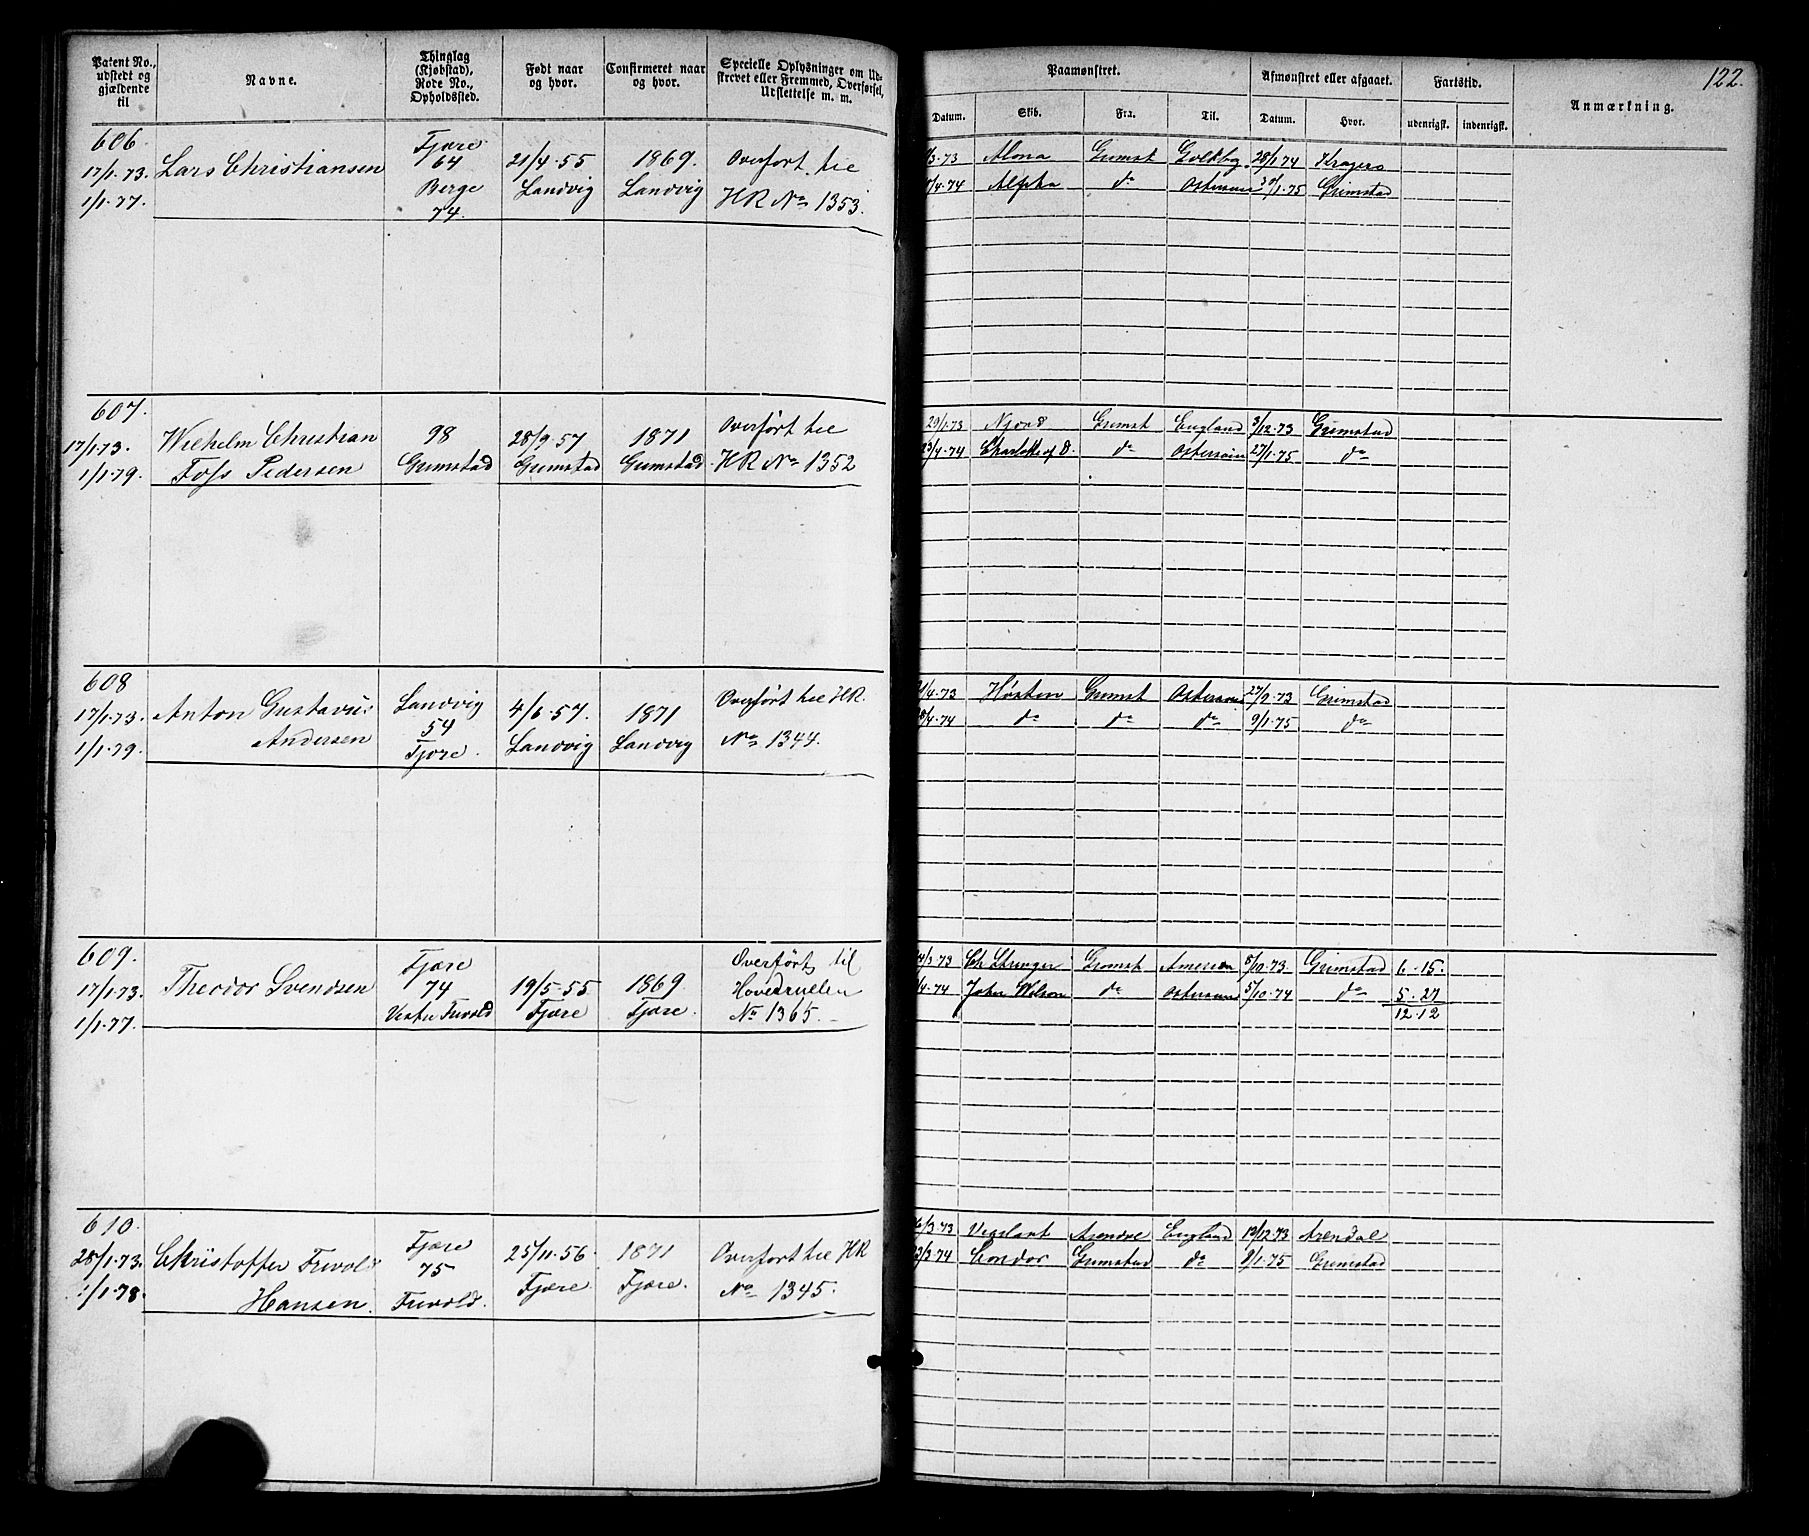 122.
Patent No., udstedt og gjældende til
Navne.
Thinglag (Kjøbstad), Rode No., Opholdssted.
Født naar og hvor.
Confirmeret naar og hvor.
Specielle Oplysninger om Udskrevet eller Fremmed, Overførsel, Udslettelse m. m.
Paamønstret.
Afmønstret eller afgaaet.
Fartstid.
Anmærkning.
Datum. Skib. Fra. Til. Datum. Hvor. udenrigsk. indenrigsk.
606.
17/1.73.
1/1.77.
Lars Christiansen
Fjære
64
Berge
74.
21/4.55
Landvig
1869.
Landvig
Overført til
HR No 1353.
/3.73 Alona Grimst 28/1 74 Kragerø
/4.74 Alpha do Østersøen /1.75 Grimstad
607.
17/1.73.
1/1.79.
Wilhelm Christian
Foss Pedersen
98
Grimstad
28/9.57
Grimstad
1871
Grimstad.
Overført til
HR No 1352
29/1.73 Njord Grimst England 3/12.73 Grimstad
23/4.74 Charlotte af D. do Østersøen 27/1.75 do
608
17/1.73.
1/1.79.
Anton Gustavus
Andersen
Landvig
54
Fjære.
4/6.57.
Landvig
1871
Landvig
Overført til HR.
No 1344.
/4.73 Høsten Grimst Østersøen 27/2.73 Grimstad
/4.74 do do do 9/1.75 do
609.
17/1.73.
1/1.77.
Theodor Svendsen
Fjære
74
Vestre Frivold
19/5.55
Fjære
1869
Fjære.
Overført til
Hovedrullen
No 1365.
/3.73 Ch Stringer Grimst America 8/10.73 Grimstad 6.15.
/4.74 John Wilson do Østersøen 5/10.74 do 5.27
12.12
610.
28/1.73.
1/1.78.
Christoffer Frivold
Hansen.
Fjære
75
Frivold.
25/11.56.
Fjære
1871
Fjære.
Overført til HR
No 1345.
6/3.73 Vigilant Arendal England 19/12.73 Arendal
/3.74 Condor Grimstad do 9/1.75 Grimstad